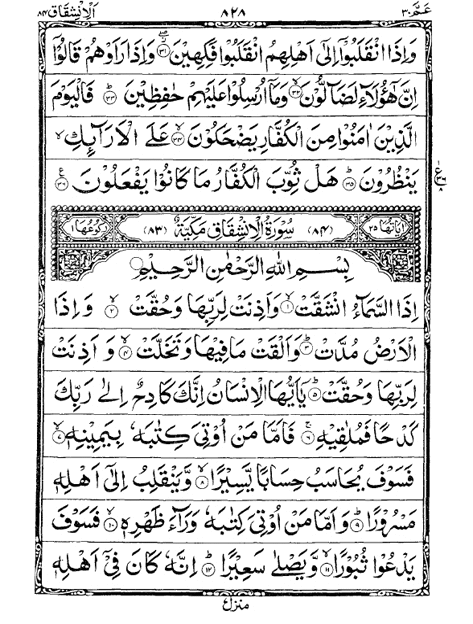 عَمَّ ٣٠ ٨٢٨ اَلْاِنْشِقَاق ٨٤
وَاِذَا انْقَلَبُوْۤا اِلٰۤى اَهْلِهِمُ انْقَلَبُوْا فَكِهِيْنَ ﴿٣١﴾ وَاِذَا رَاَوْهُمْ قَالُوْۤا
اِنَّ هٰۤؤُلَآءِ لَضَآلُّوْنَ ﴿٣٢﴾ وَمَاۤ اُرْسِلُوْا عَلَيْهِمْ حٰفِظِيْنَ ﴿٣٣﴾ فَالْيَوْمَ
الَّذِيْنَ اٰمَنُوْا مِنَ الْكُفَّارِ يَضْحَكُوْنَ ﴿٣٤﴾ عَلَى الْاَرَآئِكِ
يَنْظُرُوْنَ ﴿٣٥﴾ هَلْ ثُوِّبَ الْكُفَّارُ مَا كَانُوْا يَفْعَلُوْنَ ﴿٣٦﴾
اٰيَاتُهَا ٢٥ (٨٤) سُوْرَةُ الْاِنْشِقَاقِ مَكِّيَّةٌ (٨٣) رُكُوْعُهَا ١
بِسْمِ اللّٰهِ الرَّحْمٰنِ الرَّحِيْمِ
اِذَا السَّمَآءُ انْشَقَّتْ ﴿١﴾ وَاَذِنَتْ لِرَبِّهَا وَحُقَّتْ ﴿٢﴾ وَاِذَا
الْاَرْضُ مُدَّتْ ﴿٣﴾ وَاَلْقَتْ مَا فِيْهَا وَتَخَلَّتْ ﴿٤﴾ وَاَذِنَتْ
لِرَبِّهَا وَحُقَّتْ ﴿٥﴾ يٰۤاَيُّهَا الْاِنْسَانُ اِنَّكَ كَادِحٌ اِلٰى رَبِّكَ
كَدْحًا فَمُلٰقِيْهِ ﴿٦﴾ فَاَمَّا مَنْ اُوْتِيَ كِتٰبَهٗ بِيَمِيْنِهٖ ﴿٧﴾
فَسَوْفَ يُحَاسَبُ حِسَابًا يَّسِيْرًا ﴿٨﴾ وَّيَنْقَلِبُ اِلٰۤى اَهْلِهٖ
مَسْرُوْرًا ﴿٩﴾ وَاَمَّا مَنْ اُوْتِيَ كِتٰبَهٗ وَرَآءَ ظَهْرِهٖ ﴿١٠﴾ فَسَوْفَ
يَدْعُوْا ثُبُوْرًا ﴿١١﴾ وَّيَصْلٰى سَعِيْرًا ﴿١٢﴾ اِنَّهٗ كَانَ فِيْۤ اَهْلِهٖ
منزل